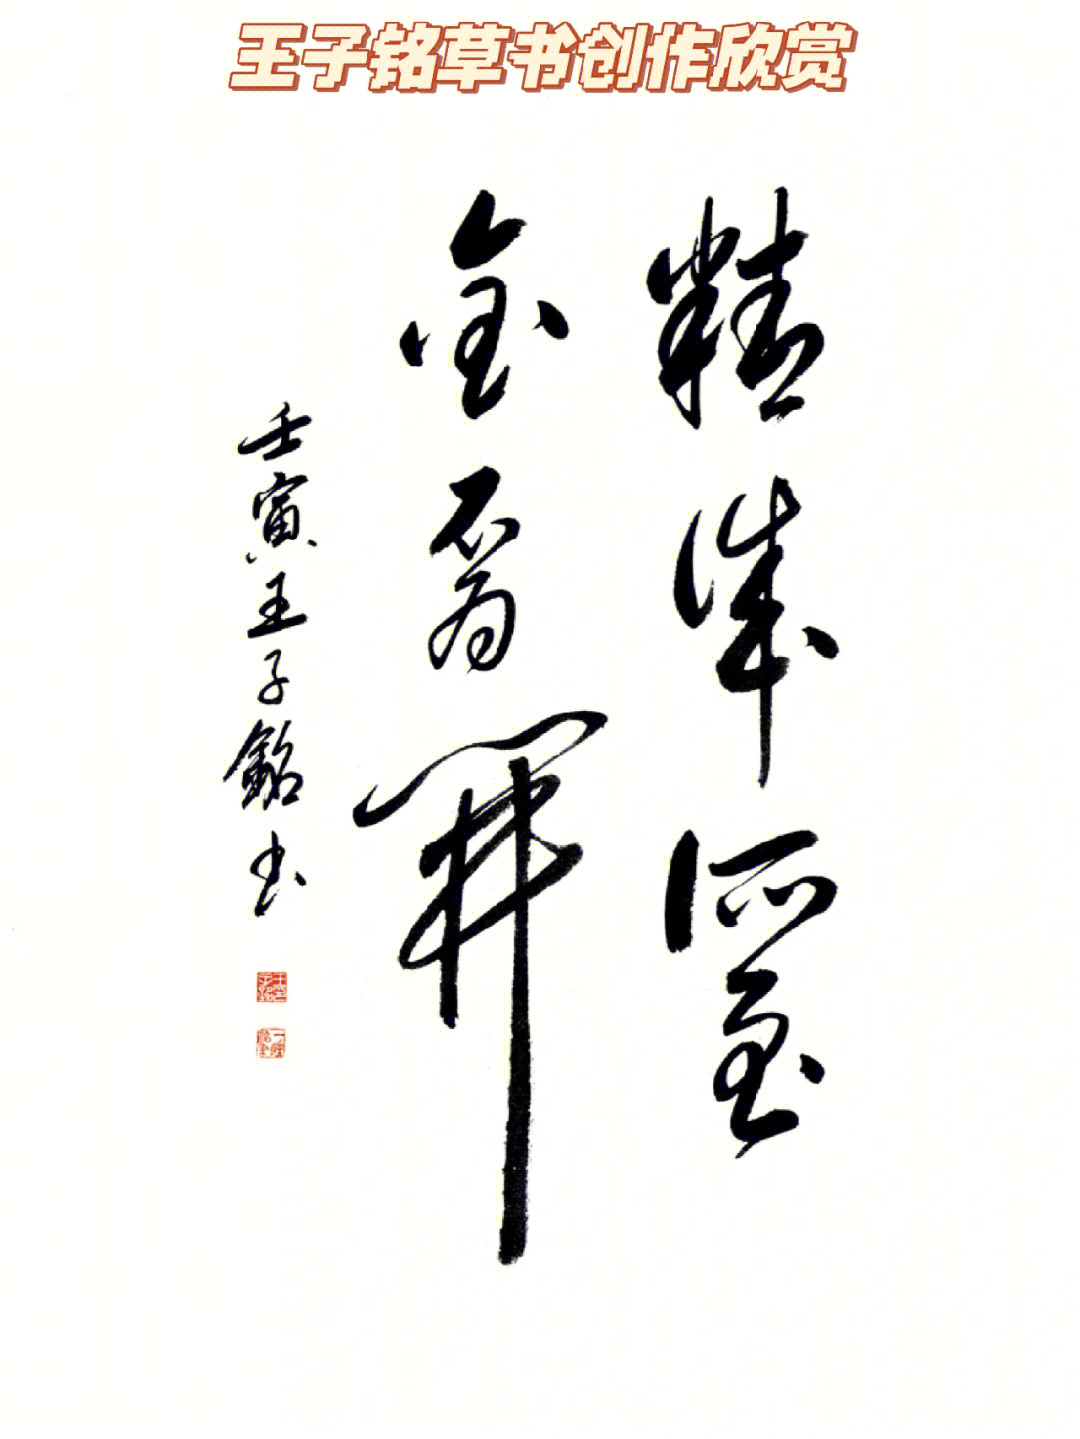 王子铭草书创作欣赏
精诚所至
金石为开
壬寅王子銘书